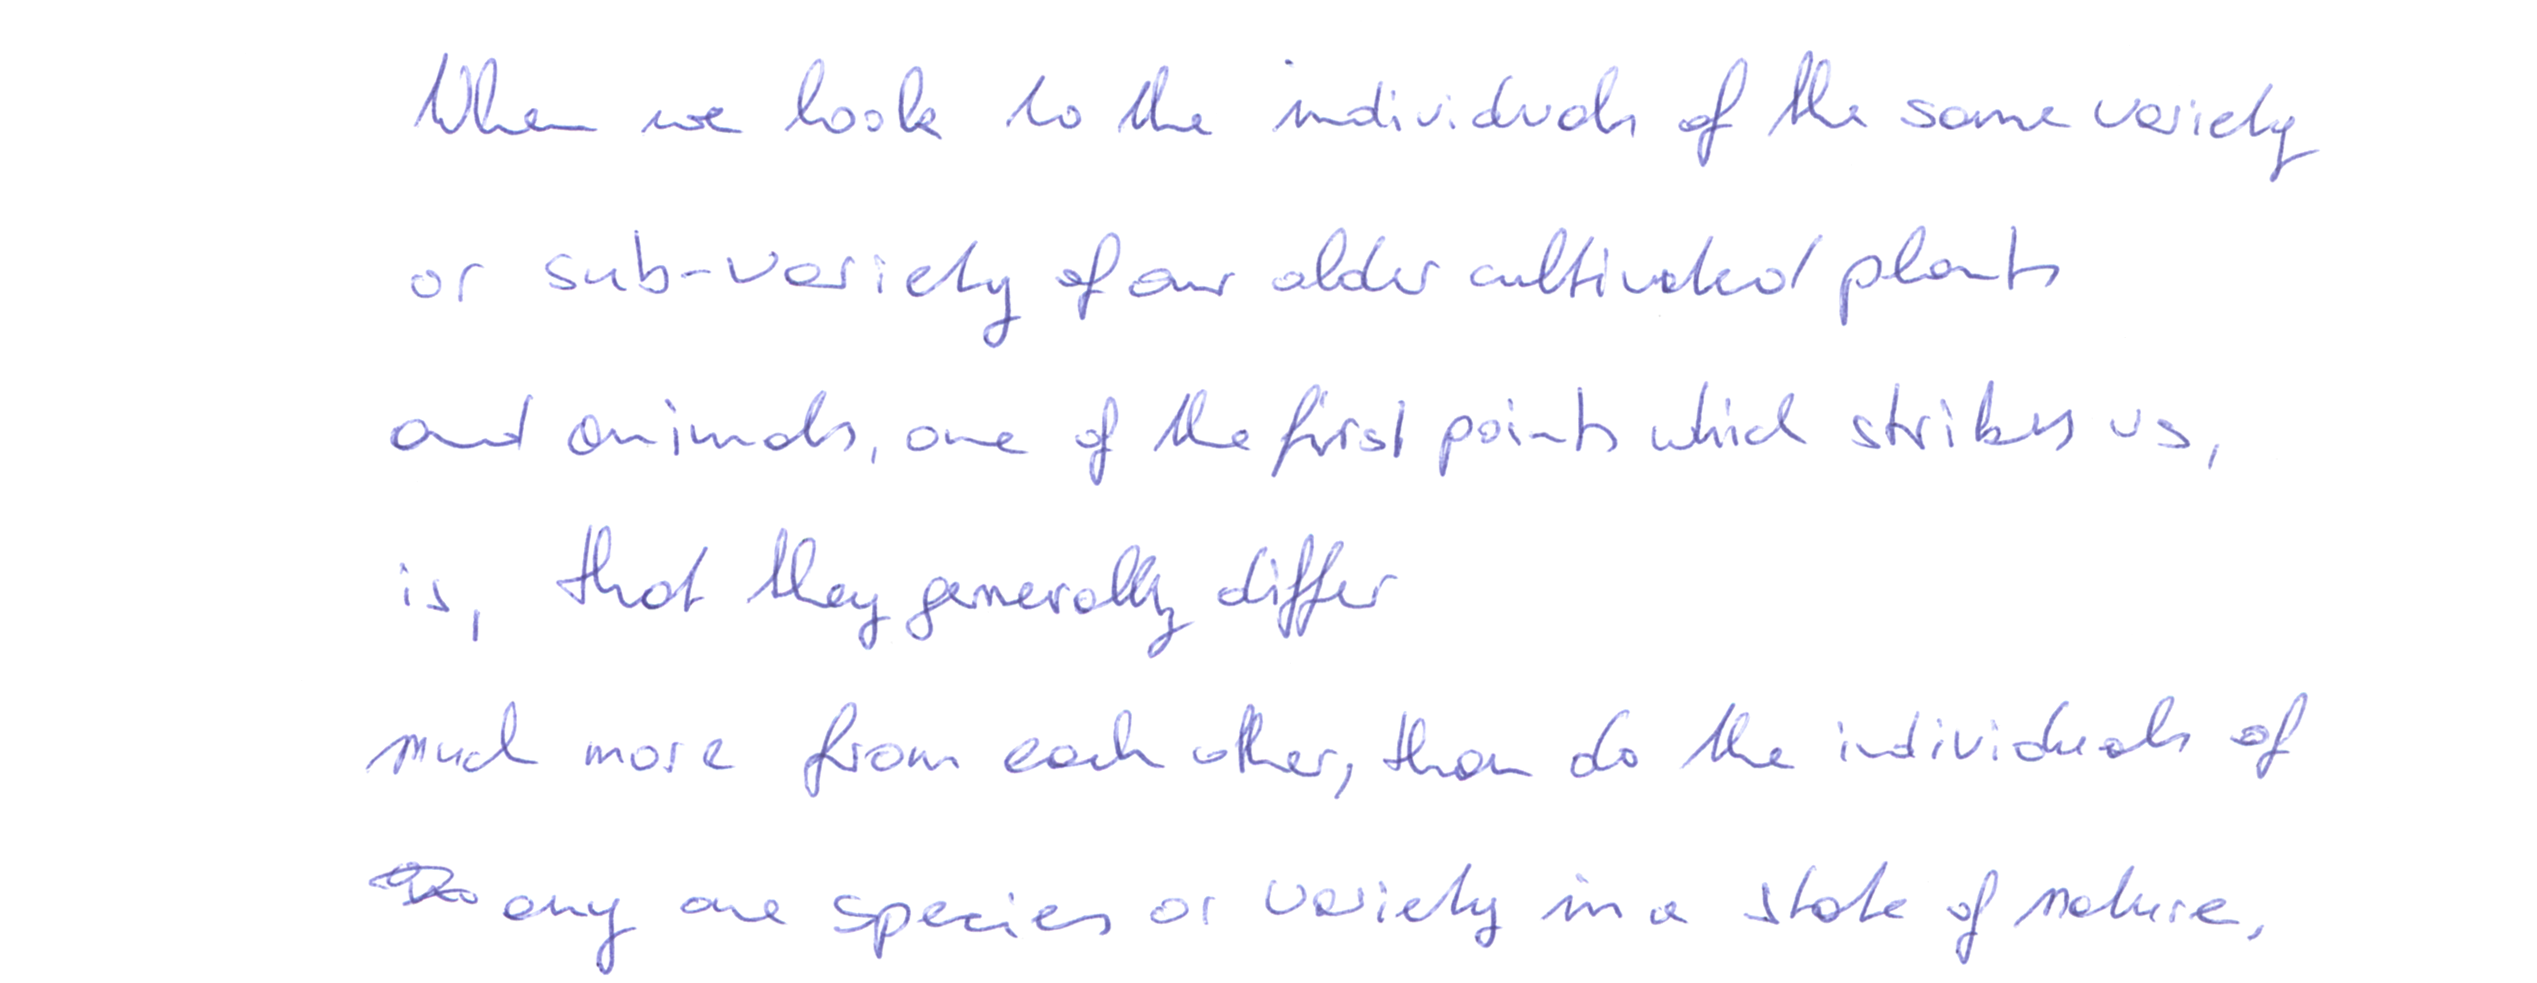 When we look to the individuals of the same variety
or sub-variety of our older cultivated plants
and animals, one of the first points which strikes us,
is, that they generally differ
much more from each other, than do the individuals of
any one species or variety in a state of nature,